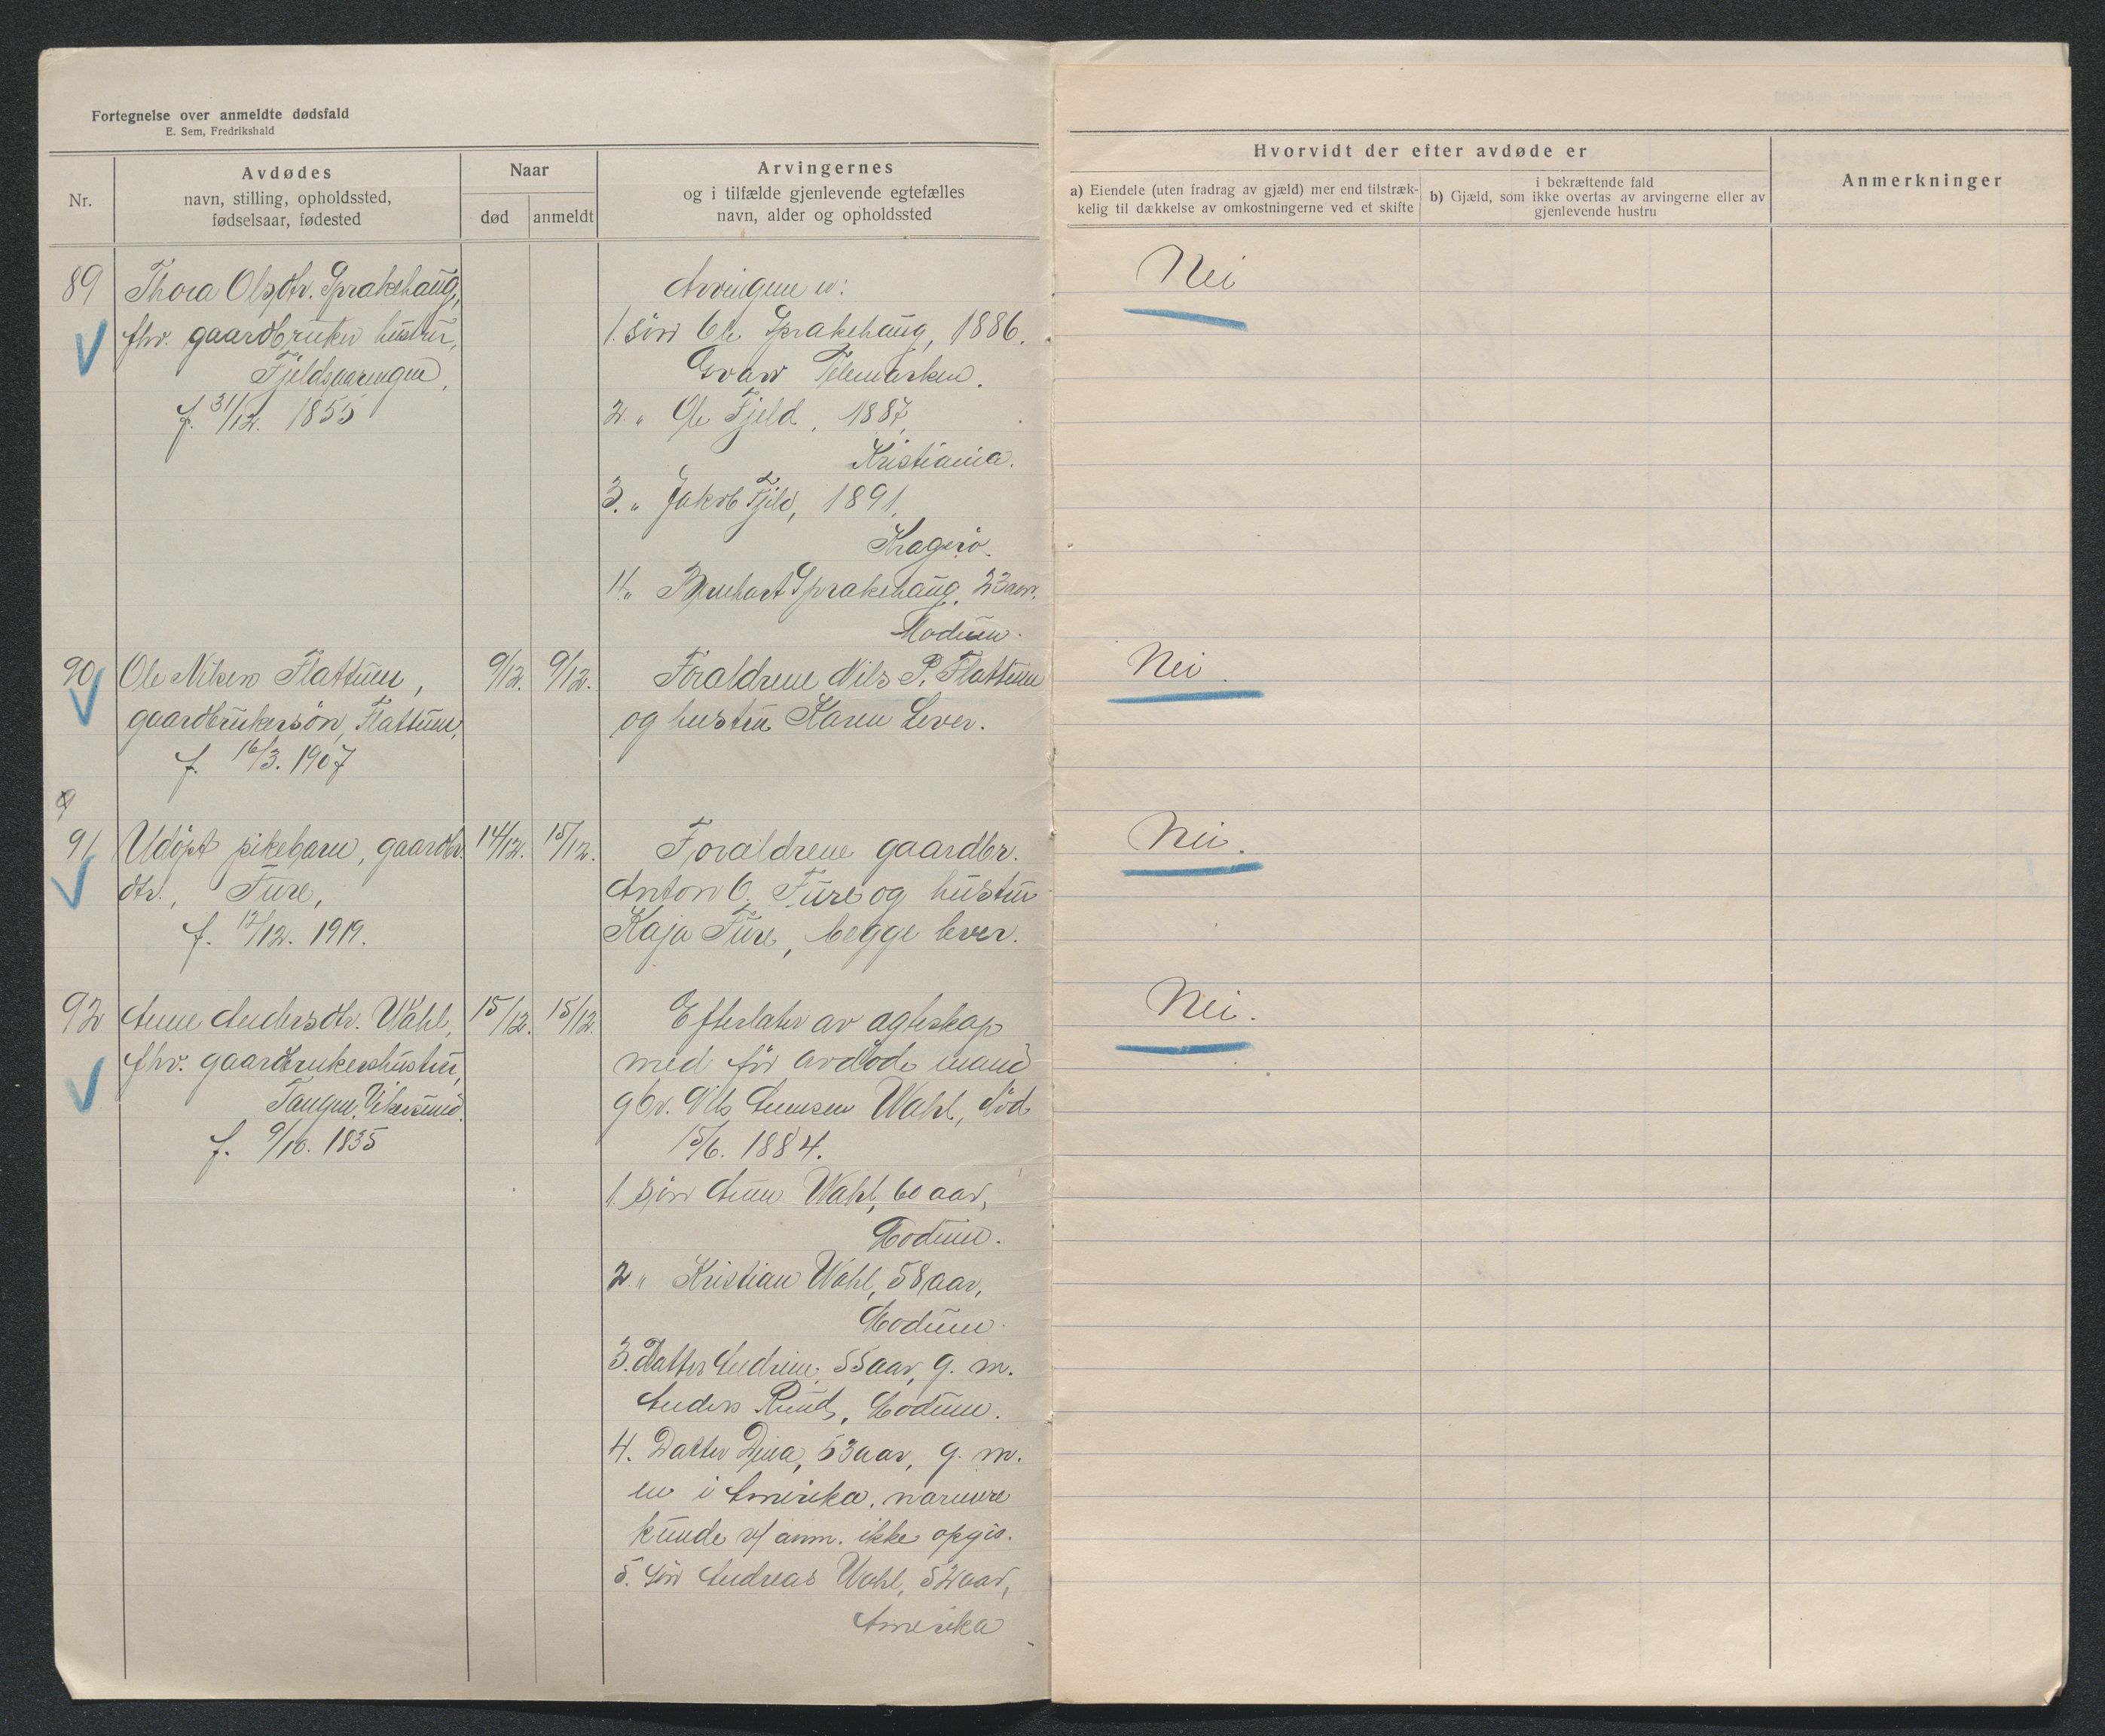 Fortegnelse over anmeldte dødsfald
E. Sem, Fredrikshald
Nr.
Avdødes
navn, stilling, opholdssted,
fødselsaar, fødested
Naar
død
anmeldt
Arvingernes
og i tilfælde gjenlevende egtefælles
navn, alder og opholdssted
Hvorvidt der efter avdøde er
a) Eiendele (uten fradrag av gjæld) mer end tilstræk-
kelig til dækkelse av omkostningerne ved et skifte
i bekræftende fald
b) Gjæld, som ikke overtas av arvingerne eller av
gjenlevende hustru
Anmerkninger
89
Thora Olsdtr. Sprakehaug,
fhv. gaardbruker hustru,
f. 31/12. 1855
Arvingene er:
1. sön Ole Sprakehaug, 1886.
Gvarv Telemarken.
2. " Ole Fjeld, 1887,
Kristiania.
3. " Jakob Fjeld, 1891,
Kragerö.
4. " Sprakehaug, 23 aar.
Modum.
Nei
90
Ole Nilsen Flattum,
gaardbrukersön, Flattum,
f. 16/3. 1907
9/12. 9/12.
Foraldrene Nils P. Flattum
og hustru Karen Lever.
Nei.
9
91
Udöpt pikebarn, gaardbr.
dtr., Fure,
f. 12/12. 1919.
14/12. 15/12.
Foraldrene gaardbr.
Anton O. Fure og hustru
Kaja Fure, begge lever.
Nei.
92
Anne Andersdtr. Wahl,
fhv. gaardbrukershustru,
Tangen, Vikersund.
f. 9/10. 1835
15/12. 15/12.
Efterlater av agteskap
med för avdöde mand
gbr. Nils Wahl, död
15/6. 1884.
1. sön Wahl, 60 aar,
Modum.
2. " Kristian Wahl, 58 aar,
Modum.
3. Datter Andrine, 55 aar, g. m.
Anders Ruud, Modum.
4. Datter Dina, 53 aar, g. m.
en i Amerika, narmere
kunde v/ anm. ikke opgis.
5. Sön Andreas Wahl, 52 aar,
Amerika
Nei.